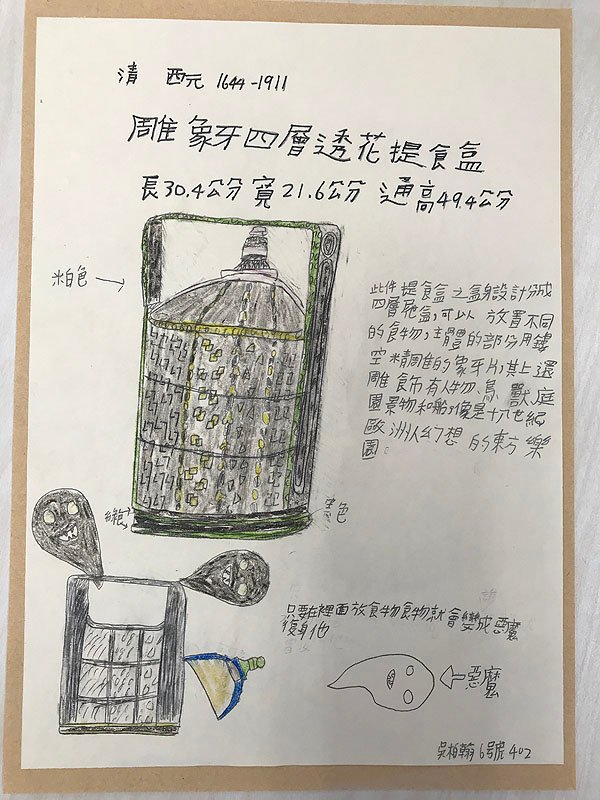 清 西元 1644-1911
雕象牙四層透花提食盒
長30.4公分 寬21.6公分 通高49.4公分
米白色
此件提食盒之盒身設計分成
四層孢盒,可以放置不同
的食物,主體的部分用鏤
空精雕的象牙片,其上還
雕飾有人物、鳥獸庭
園景物和船,像是十八世紀
歐洲人幻想的東方樂
園。
綠色
黑色
只要在裡面放食物食物就會變成惡魔
復身他
惡魔
吳柏翰 6號 402